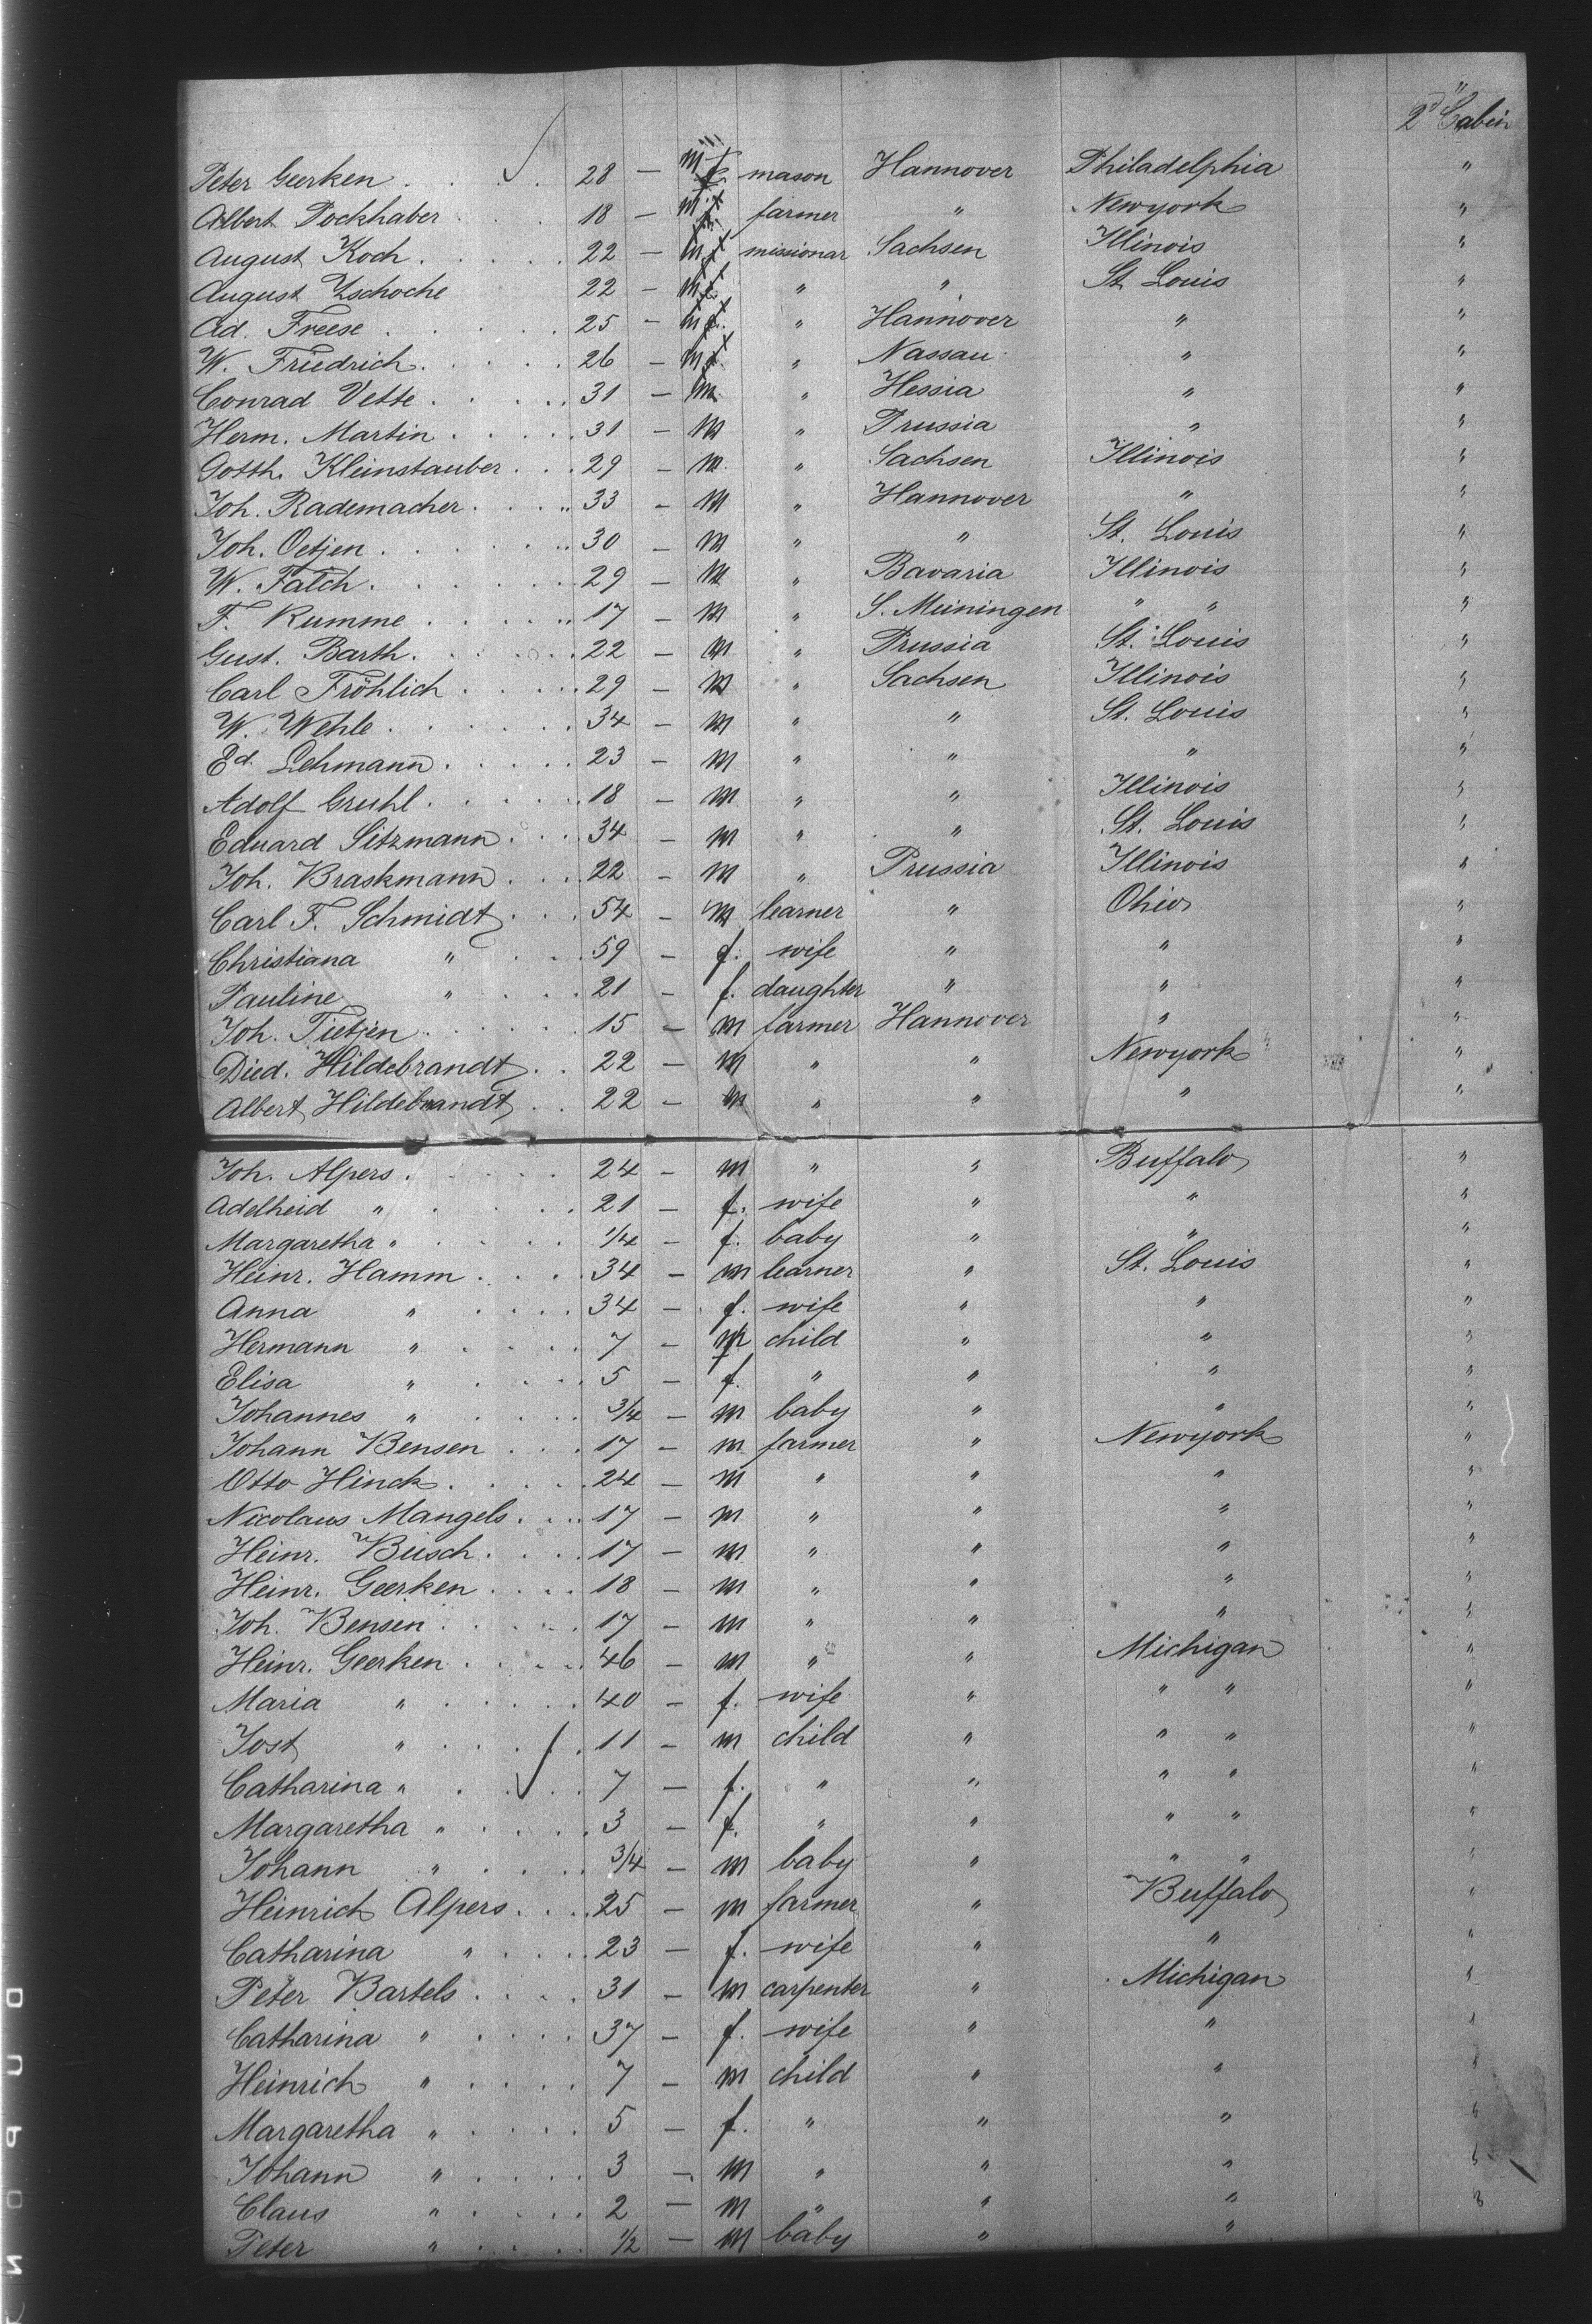 "
2d Cabin
Peter Geerken . . . . 28 — m mason Hannover Philadelphia "
Albert Pockhaber . . . 18 — m farmer " Newyork "
August Koch . . . . . 22 — m missionar Sachsen Illinois "
August Zschoche 22 — m " " St. Louis "
Ad. Freese . . . . . 25 — m " Hannover " "
W. Friedrich . . . . . 26 — m " Nassau " "
Conrad Vette . . . . . 31 — m " Hessia " "
Herm. Martin . . . . . 31 — m " Prussia " "
Gotth. Kleinstauber . . . 29 — m " Sachsen Illinois "
Joh. Rademacher . . . . 33 — m " Hannover " "
Joh. Oetjen . . . . . . 30 — m " " St. Louis "
W. Falch . . . . . . 29 — m " Bavaria Illinois "
F. Kumme . . . . . 17 — m " S. Meiningen " " "
Gust. Barth . . . . . 22 — m " Prussia St. Louis "
Carl Fröhlich . . . . . 29 — m " Sachsen Illinois "
W. Wehle . . . . . . 34 — m " " St. Louis "
Ed. Lehmann . . . . . 23 — m " " " "
Adolf Gruhl . . . . . 18 — m " " Illinois "
Eduard Sitzmann . . . 34 — m " " St. Louis "
Joh. Braskmann . . . . 22 — m " Prussia Illinois "
Carl F. Schmidt . . . 54 — m learner " Ohio "
Christiana " . . . 59 — f. wife " " "
Pauline " . . . 21 — f. daughter " " "
Joh. Tietjen . . . . . 15 — m farmer Hannover " "
Died. Hildebrandt . . 22 — m " " Newyork "
Albert Hildebrandt . . 22 — m " " " "
Joh. Alpers . . . . . 24 — m " " Buffalo "
Adelheid " . . . . . 21 — f. wife " " "
Margaretha " . . . . . 1/4 — f. baby " " "
Heinr. Hamm . . . . 34 — m learner " St. Louis "
Anna " . . . . 34 — f. wife " " "
Hermann " . . . . 7 — m child " " "
Elisa " . . . . 5 — f. " " " "
Johannes " . . . . 3/4 — m baby " " "
Johann Bensen . . . 17 — m farmer " Newyork "
Otto Hinck . . . . . 24 — m " " " "
Nicolaus Mangels . . . 17 — m " " " "
Heinr. Busch . . . . 17 — m " " " "
Heinr. Geerken . . . . 18 — m " " " "
Joh. Bensen . . . . . 17 — m " " " "
Heinr. Geerken . . . . 46 — m " " Michigan "
Maria " . . . . . 40 — f. wife " " " "
Jost " . . . . 11 — m child " " " "
Catharina " . . . . 7 — f. " " " " "
Margaretha " . . . . . 3 — f. " " " " "
Johann " . . . . 3/4 — m baby " " " "
Heinrich Alpers . . . . 25 — m farmer " Buffalo "
Catharina " . . . . 23 — f. wife " " "
Peter Bartels . . . . 31 — m carpenter " Michigan "
Catharina " . . . . 37 — f. wife " " "
Heinrich " . . . . 7 — m child " " "
Margaretha " . . . . . 5 — f. " " " "
Johann " . . . . 3 — m " " " "
Claus " . . . . . 2 — m " " " "
Peter " . . . . 1/2 — m baby " "